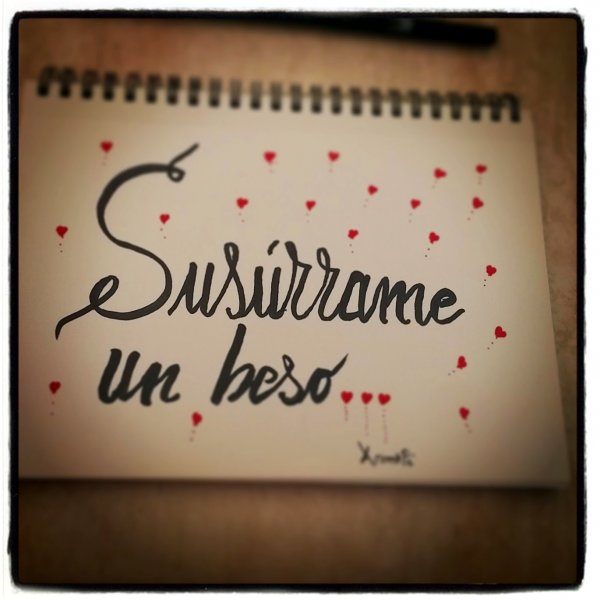 Susúrrame
un beso...